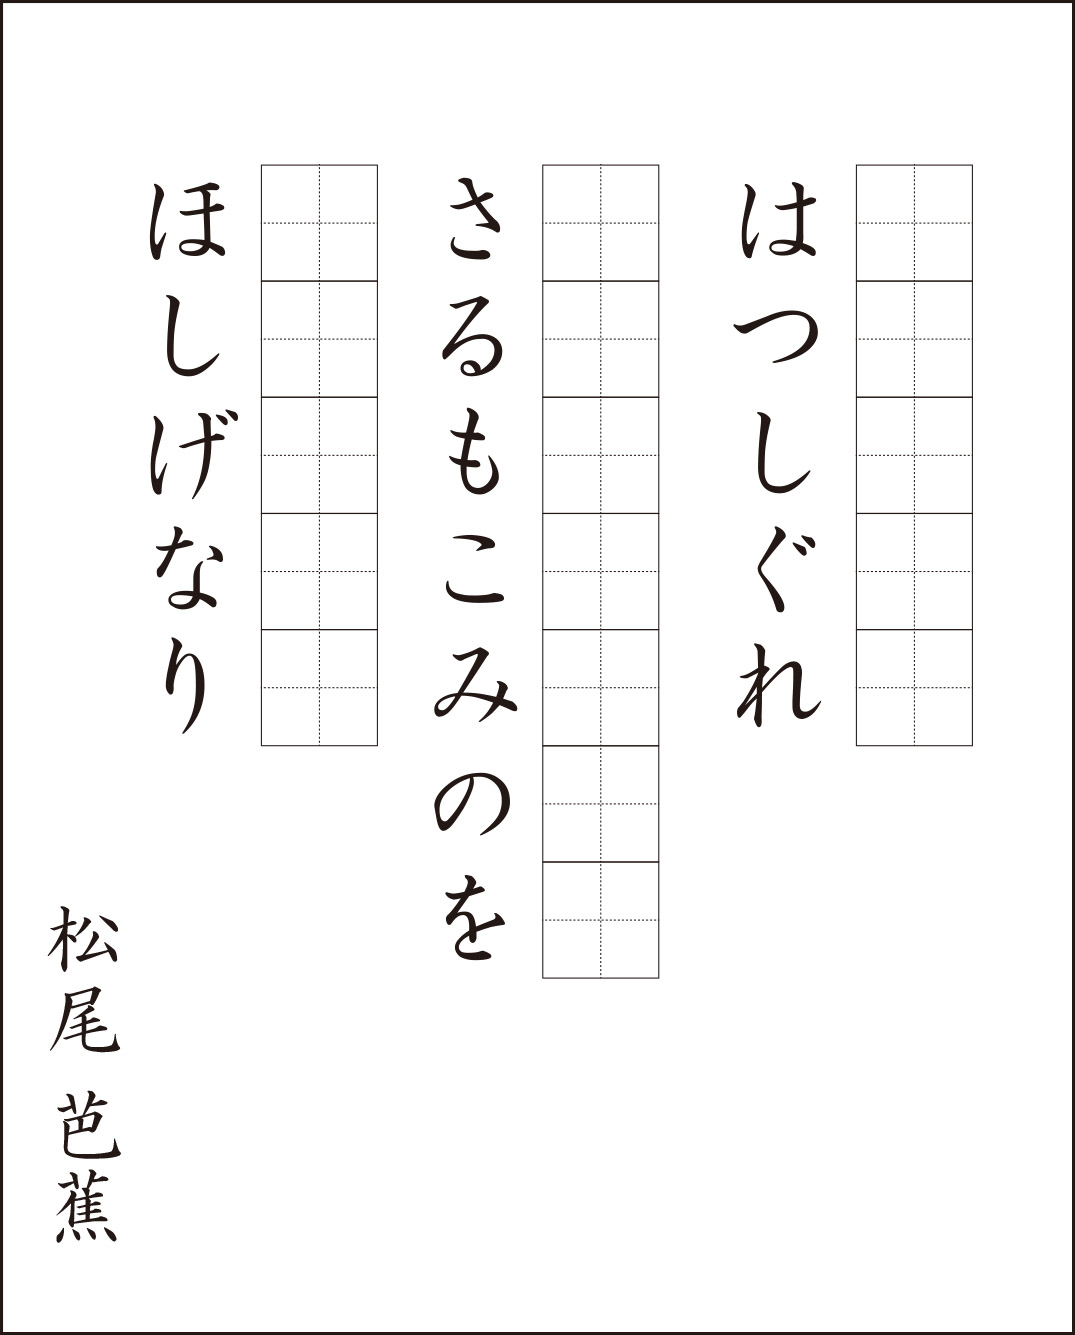 はつしぐれ
さるもこみのを
ほしげなり
松尾 芭蕉